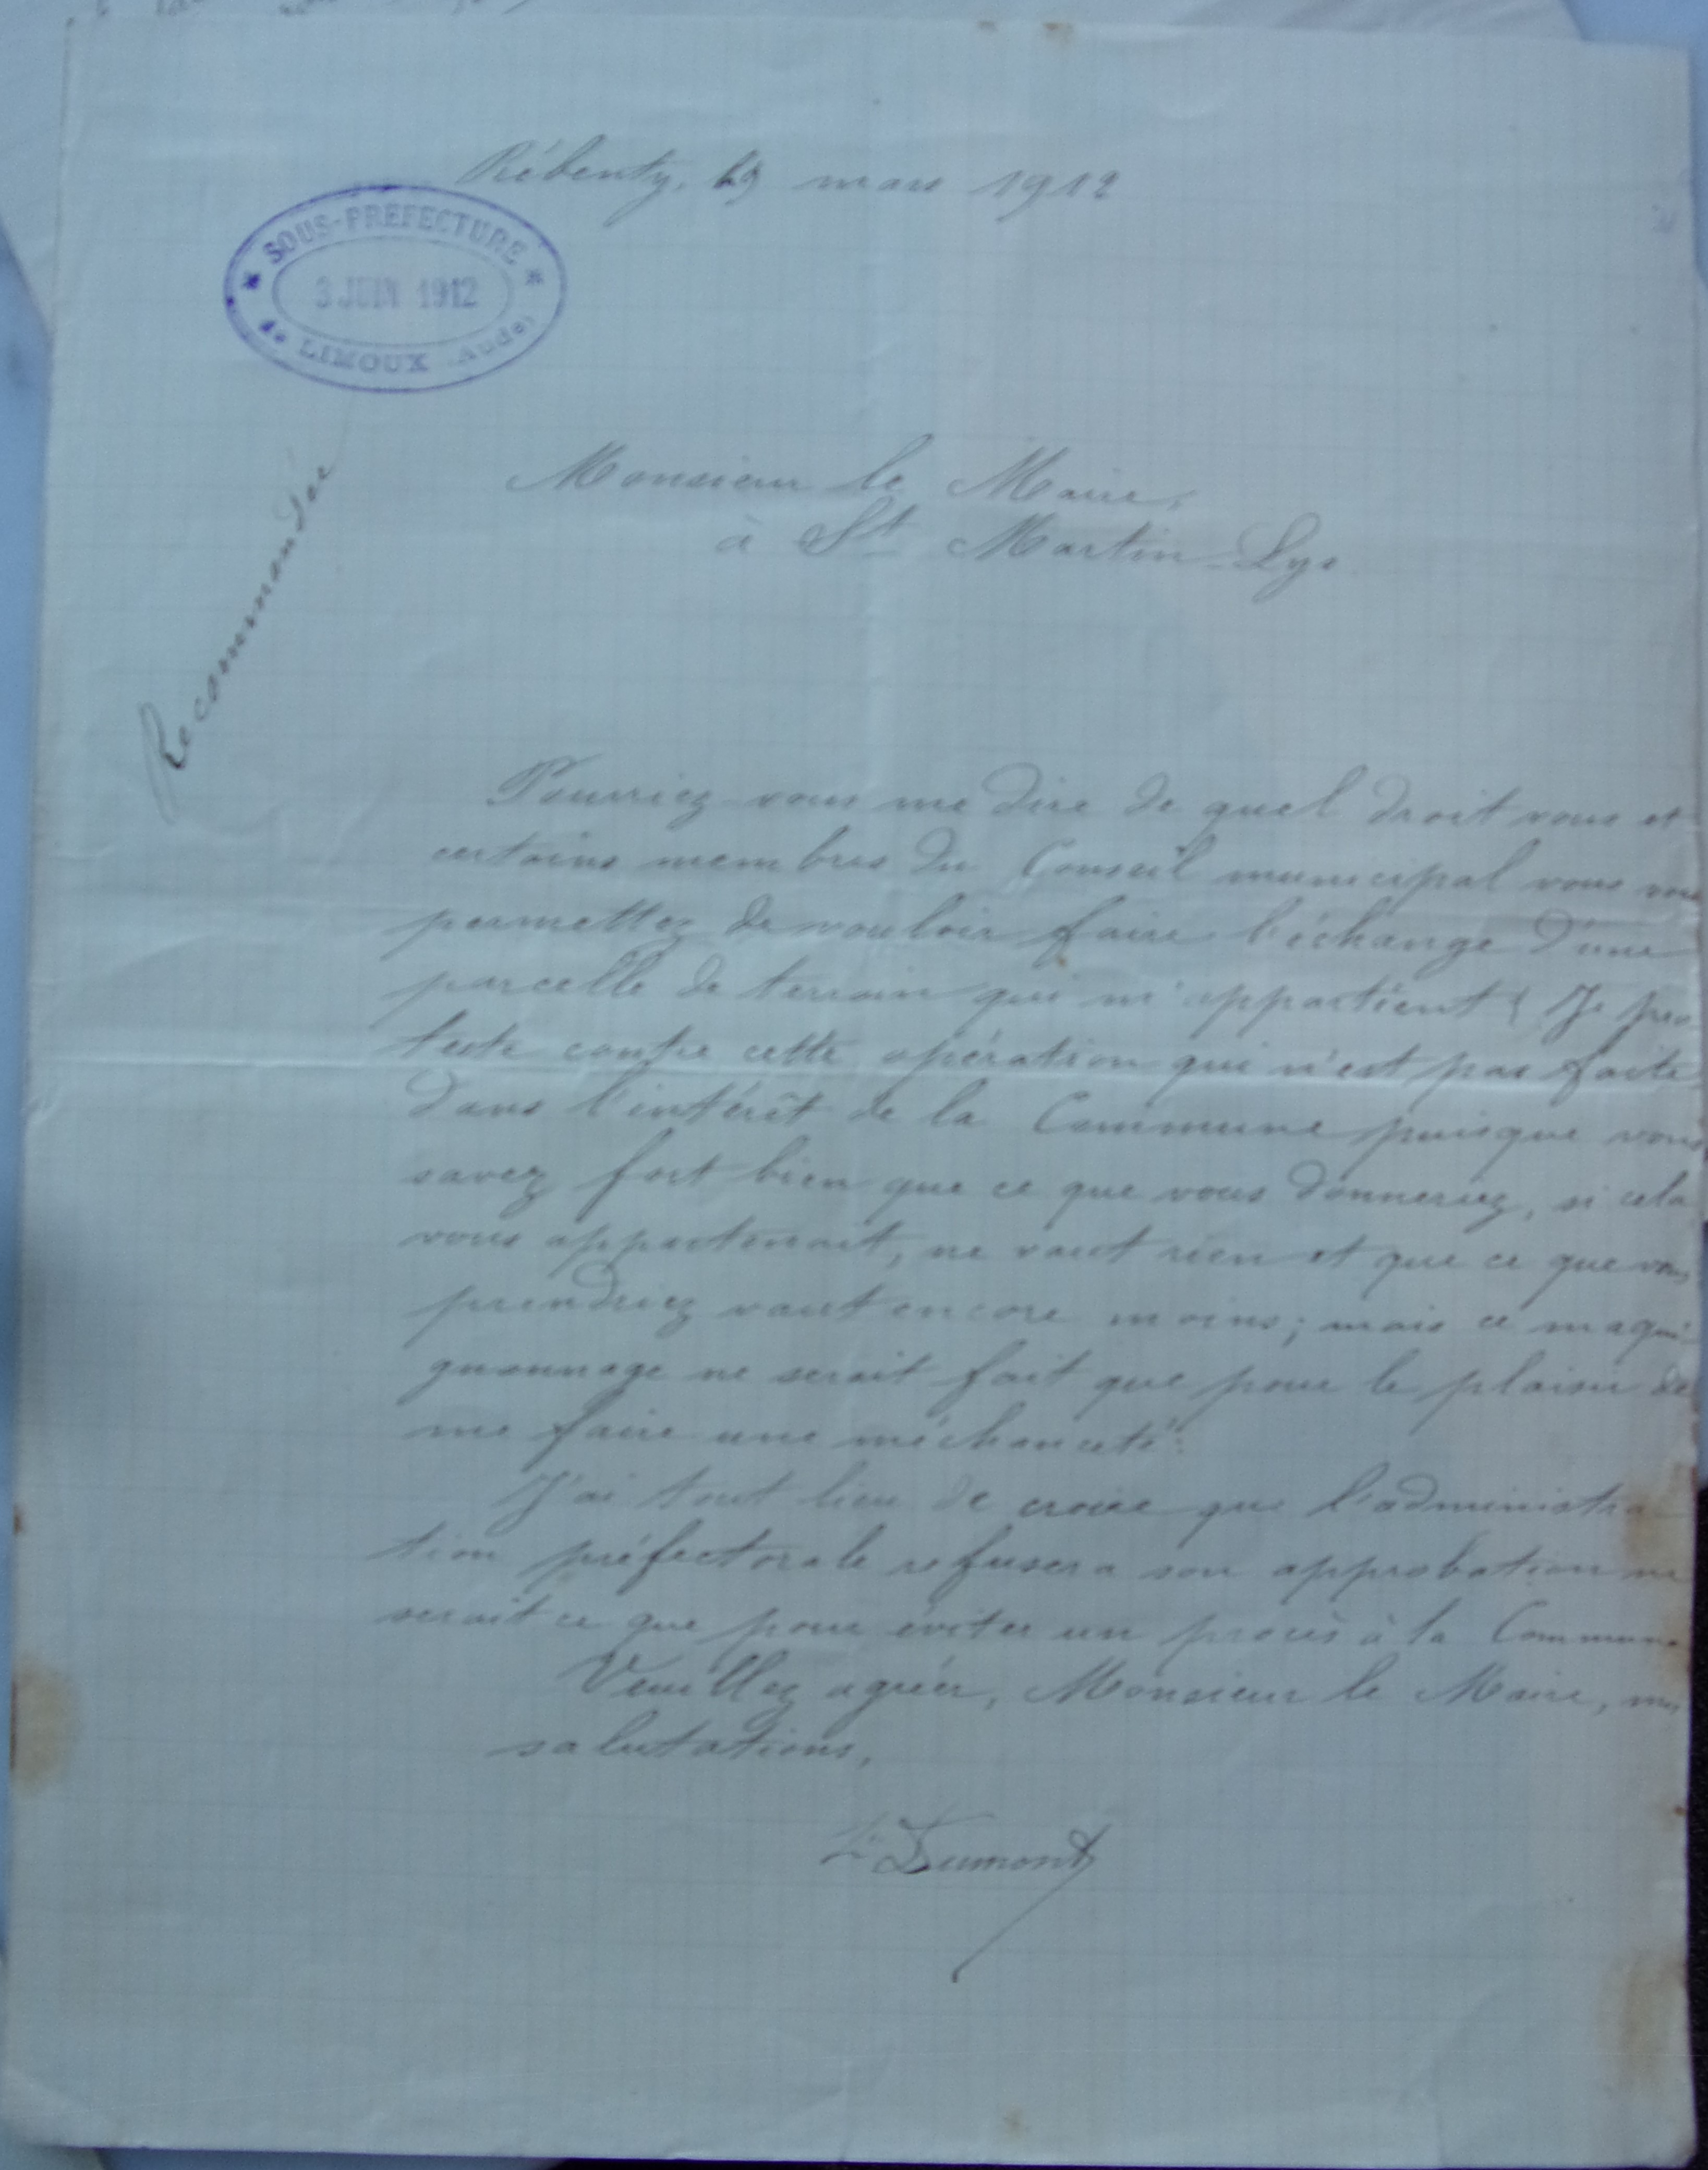 Rébenty, mars 1912
SOUS-PREFECTURE
3 JUIN 1912
de LIMOUX (Aude)
Recommandée
Monsieur le Maire,
à St Martin-Lys
Pourriez-vous me dire de quel droit vous et
certains membres du Conseil municipal vous vous
permettez de vouloir faire l'échange d'une
parcelle de terrain qui m'appartient ? Je pro
teste contre cette opération qui n'est pas faite
dans l'intérêt de la Commune puisque vous
savez fort bien que ce que vous donneriez, si cela
vous appartenait, ne vaut rien et que ce que vous
prendriez vaut encore moins; mais ce maqui
gnonnage ne serait fait que pour le plaisir de
me faire une méchanceté.
J'ai tout lieu de croire que l'administra
tion préfectorale refusera son approbation ne
serait ce que pour éviter un procès à la Commune
Veuillez agréer, Monsieur le Maire, mes
salutations,
Dumont